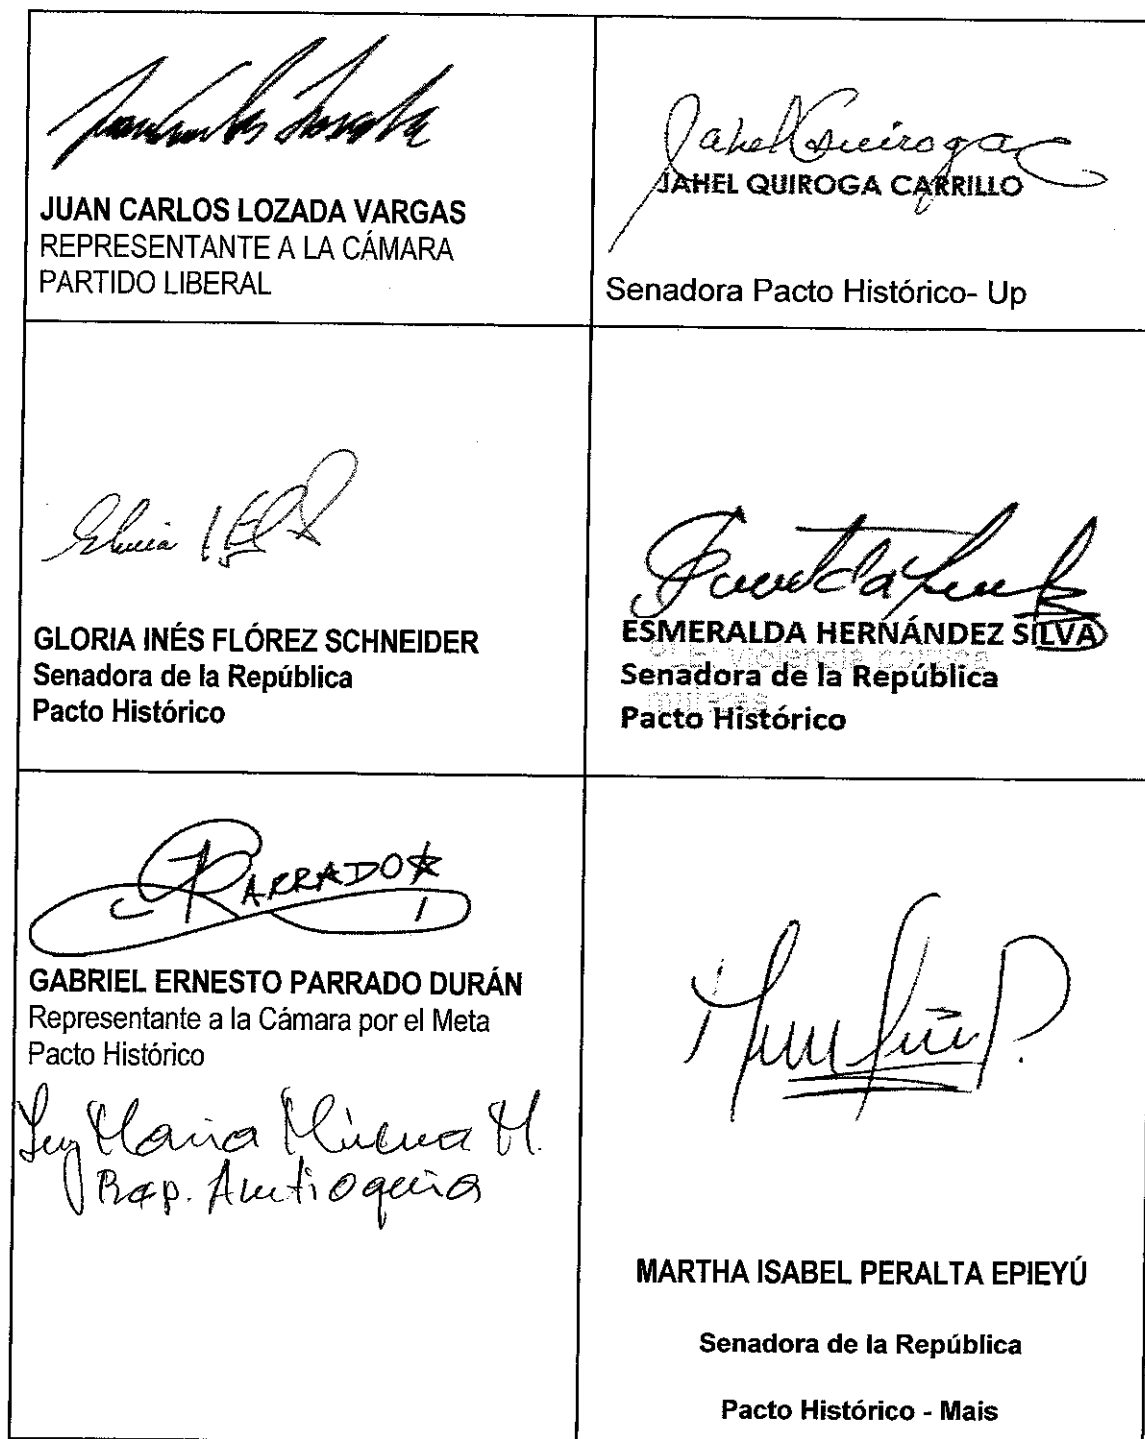 JUAN CARLOS LOZADA VARGAS
REPRESENTANTE A LA CÁMARA
PARTIDO LIBERAL
Jahel Quiroga C
JAHEL QUIROGA CARRILLO
Senadora Pacto Histórico- Up
GLORIA INÉS FLÓREZ SCHNEIDER
Senadora de la República
Pacto Histórico
ESMERALDA HERNÁNDEZ SILVA
PLE: violencia política
Senadora de la República
mujeres
Pacto Histórico
PARRADO
GABRIEL ERNESTO PARRADO DURÁN
Representante a la Cámara por el Meta
Pacto Histórico
Luz María Múnera M.
Rep. Antioquia
MARTHA ISABEL PERALTA EPIEYÚ
Senadora de la República
Pacto Histórico - Mais